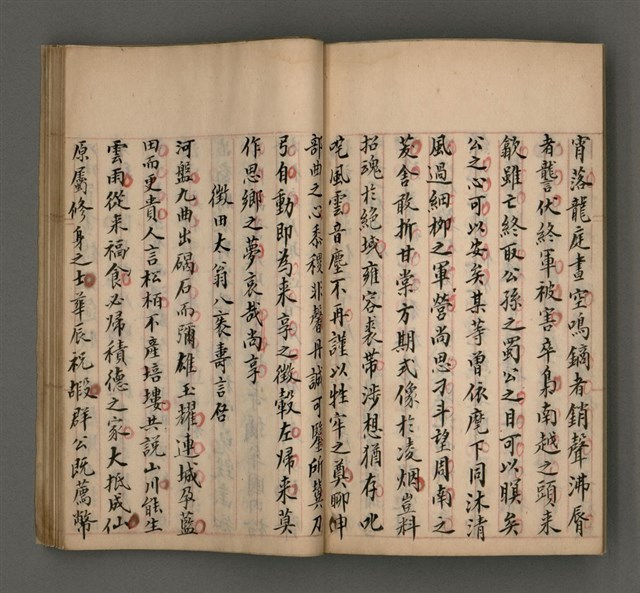 宵落龍庭晝空鳴鏑者銷聲沸脣
者讋伏終軍被害卒梟南越之頭来
歙雖亡終取公孫之蜀公之目可以瞑矣
公之心可以安矣某等曾依麾下同沐清
風過細柳之軍營尚思刁斗望周南之
茇舍敢折甘棠方期式像於凌烟豈料
招魂於絕域雍容裘帶涉想猶存叱
咤風雲音塵不再謹以牲牢之奠聊申
部曲之心黍稷非馨丹誠可鑒所冀刀
弓自動即為来享之徵轂左歸来莫
作思鄉之夢哀哉尚享
徵田太翁八裘壽言啓
河盤九曲出碣石而彌雄玉耀連城孕藍
田而更貴人言松柏不產培塿共說山川能生
雲雨從来福食必歸積德之家大抵成仙
原屬修身之士華辰祝嘏群公既薦幣